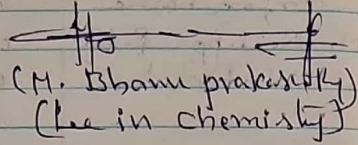 (M. Bhanu prakash
(Lec in chemisty)